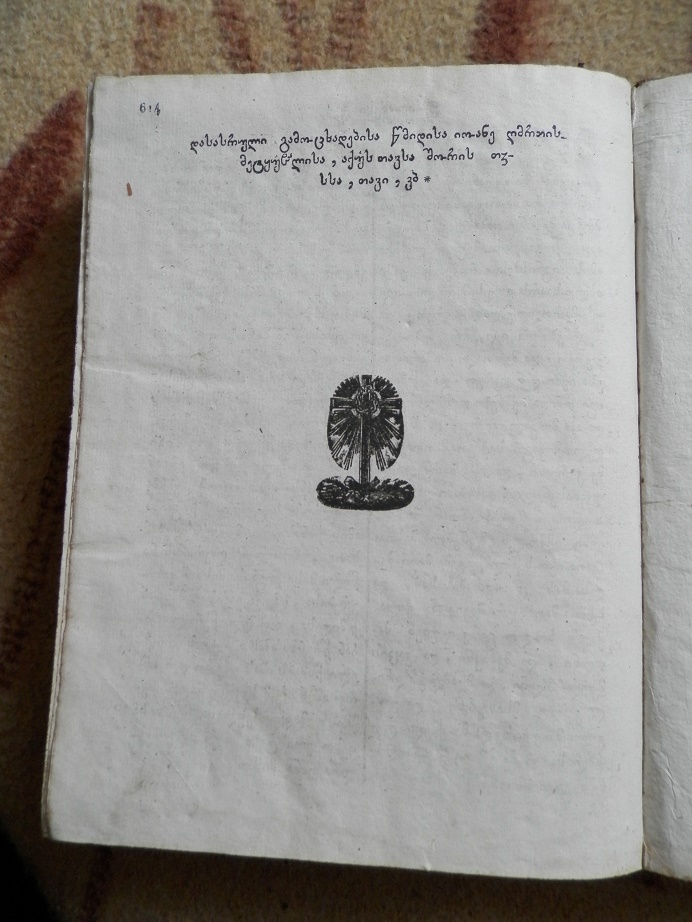 614
დასასრული გამოცხადებისა წმიდისა იოანე ღმრთის-
მეტყუჱლისა , აქუს თავსა შორის თჳ-
სსა , თავი , კბ *